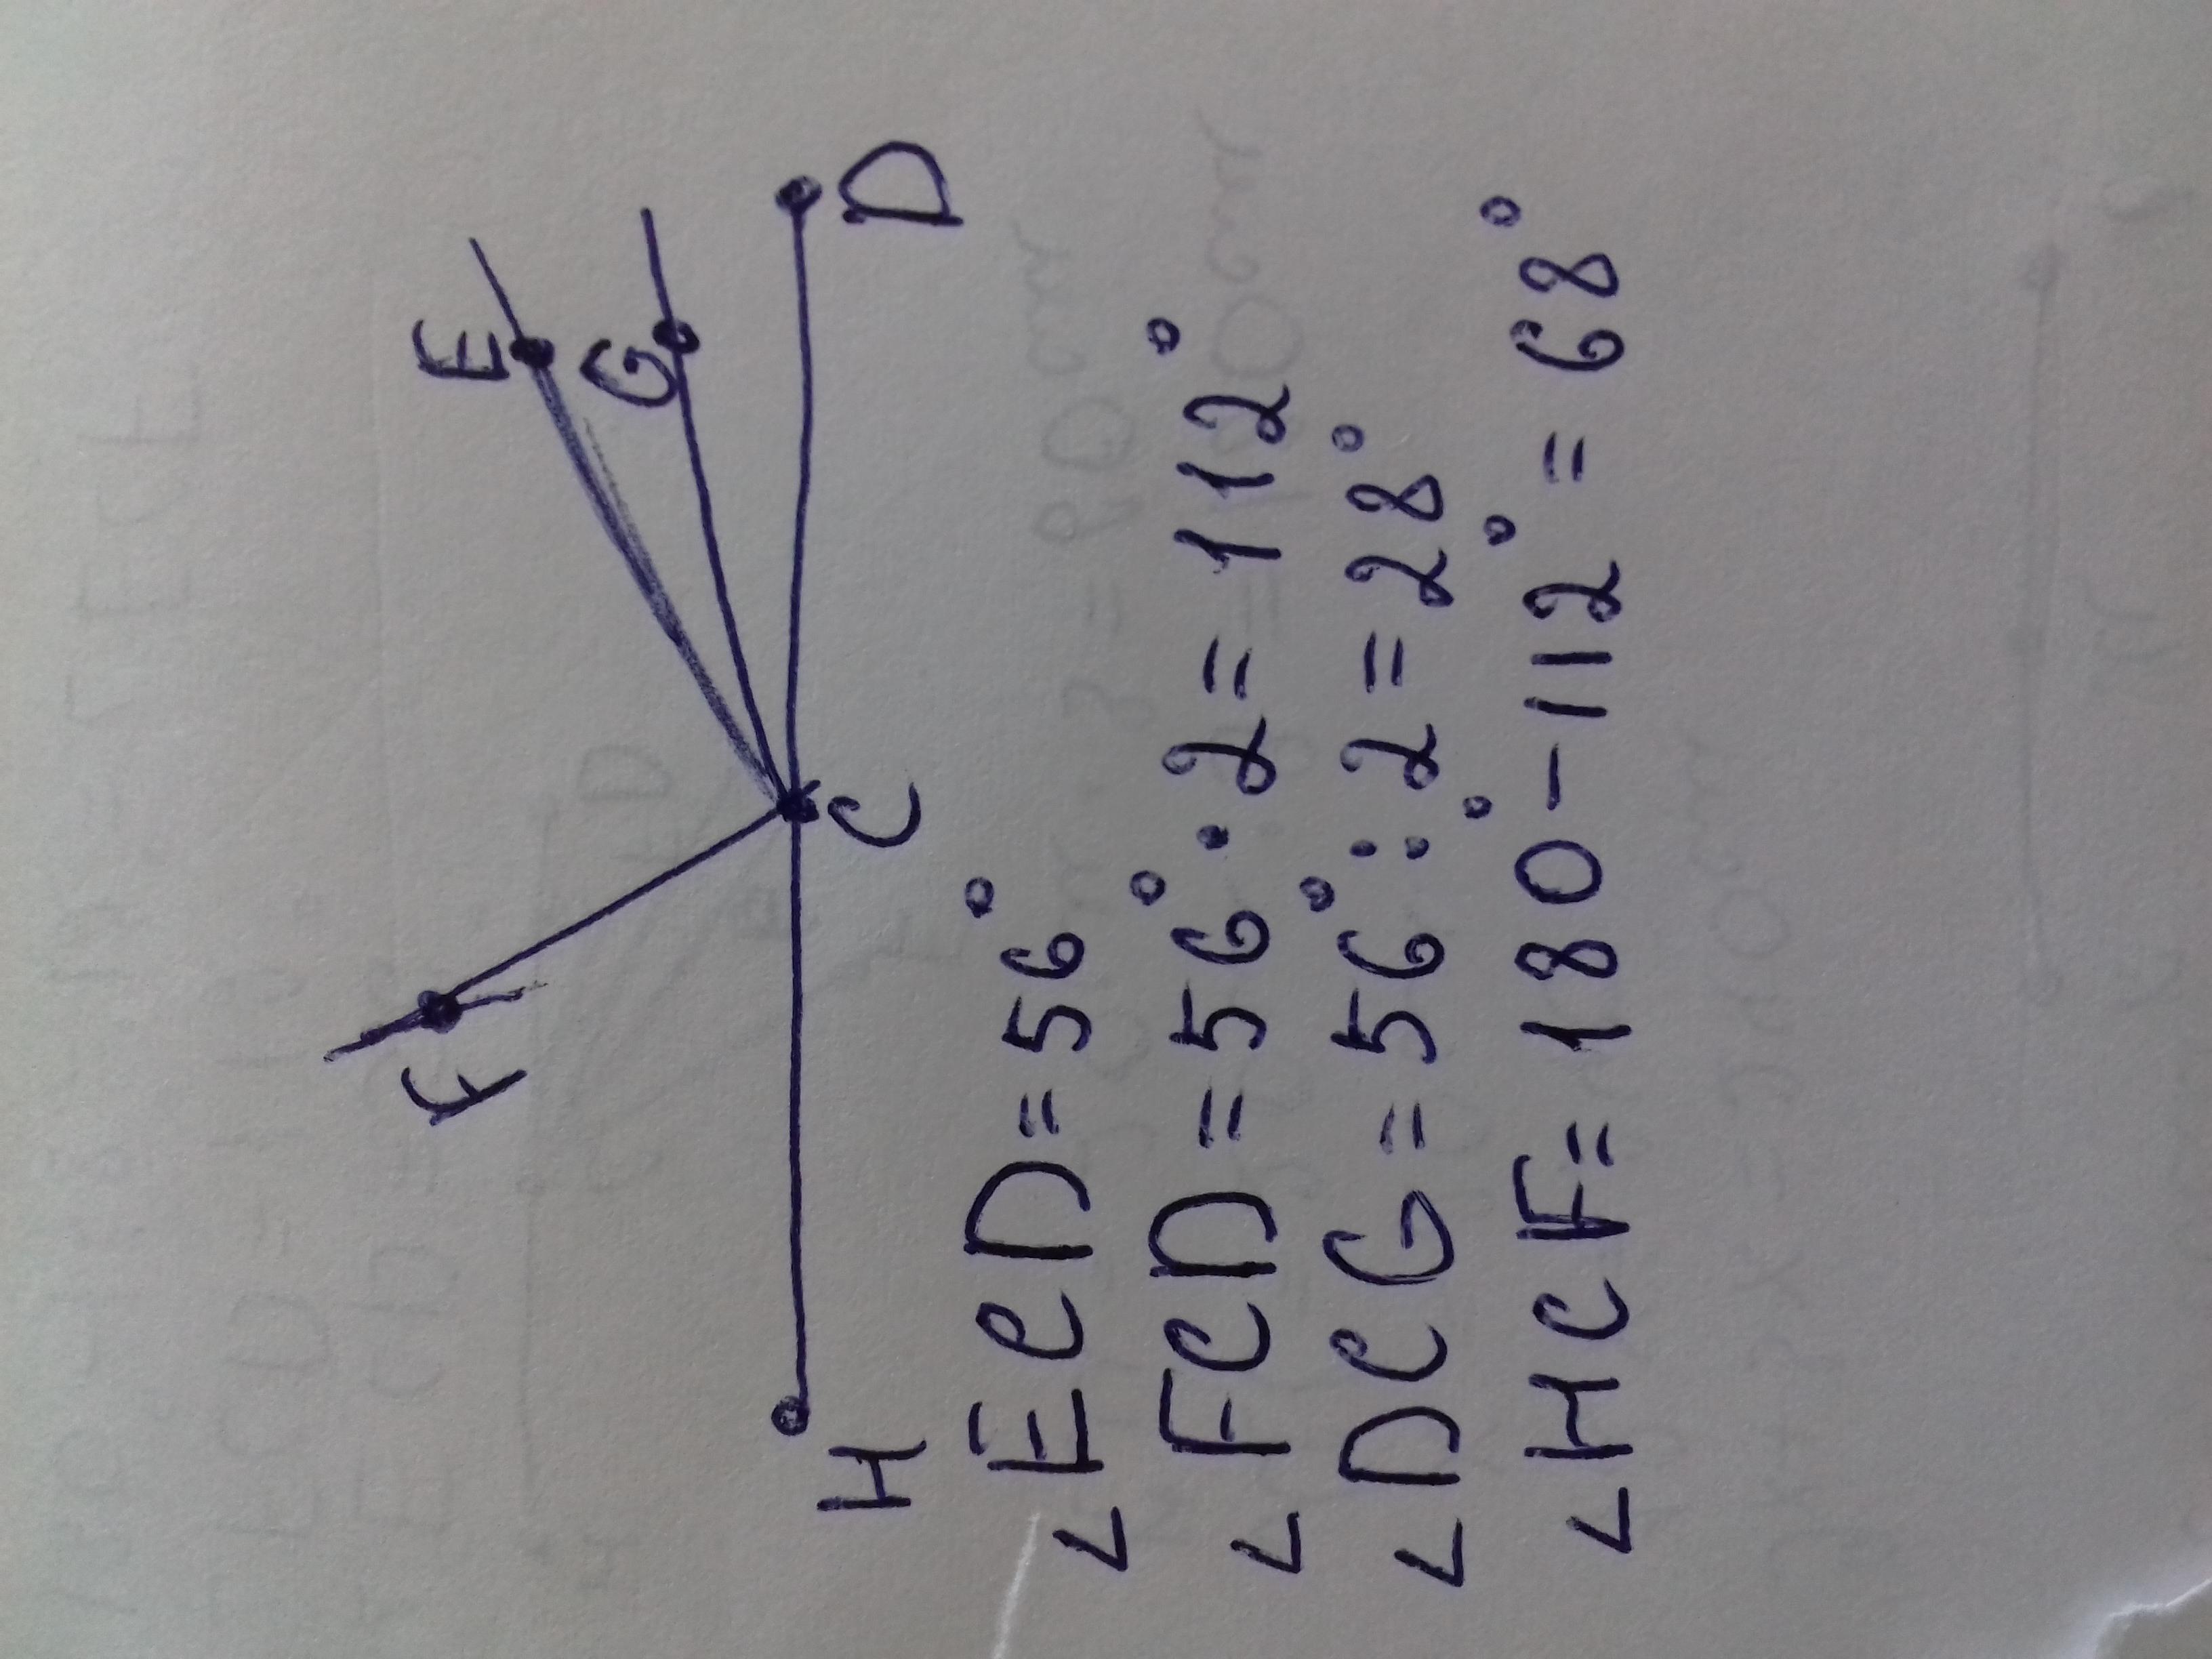 E
F
G
H
C
D
∠ECD=56°
∠FCD=56°·2=112°
∠DCG=56°:2=28°
∠HCF=180°-112°=68°